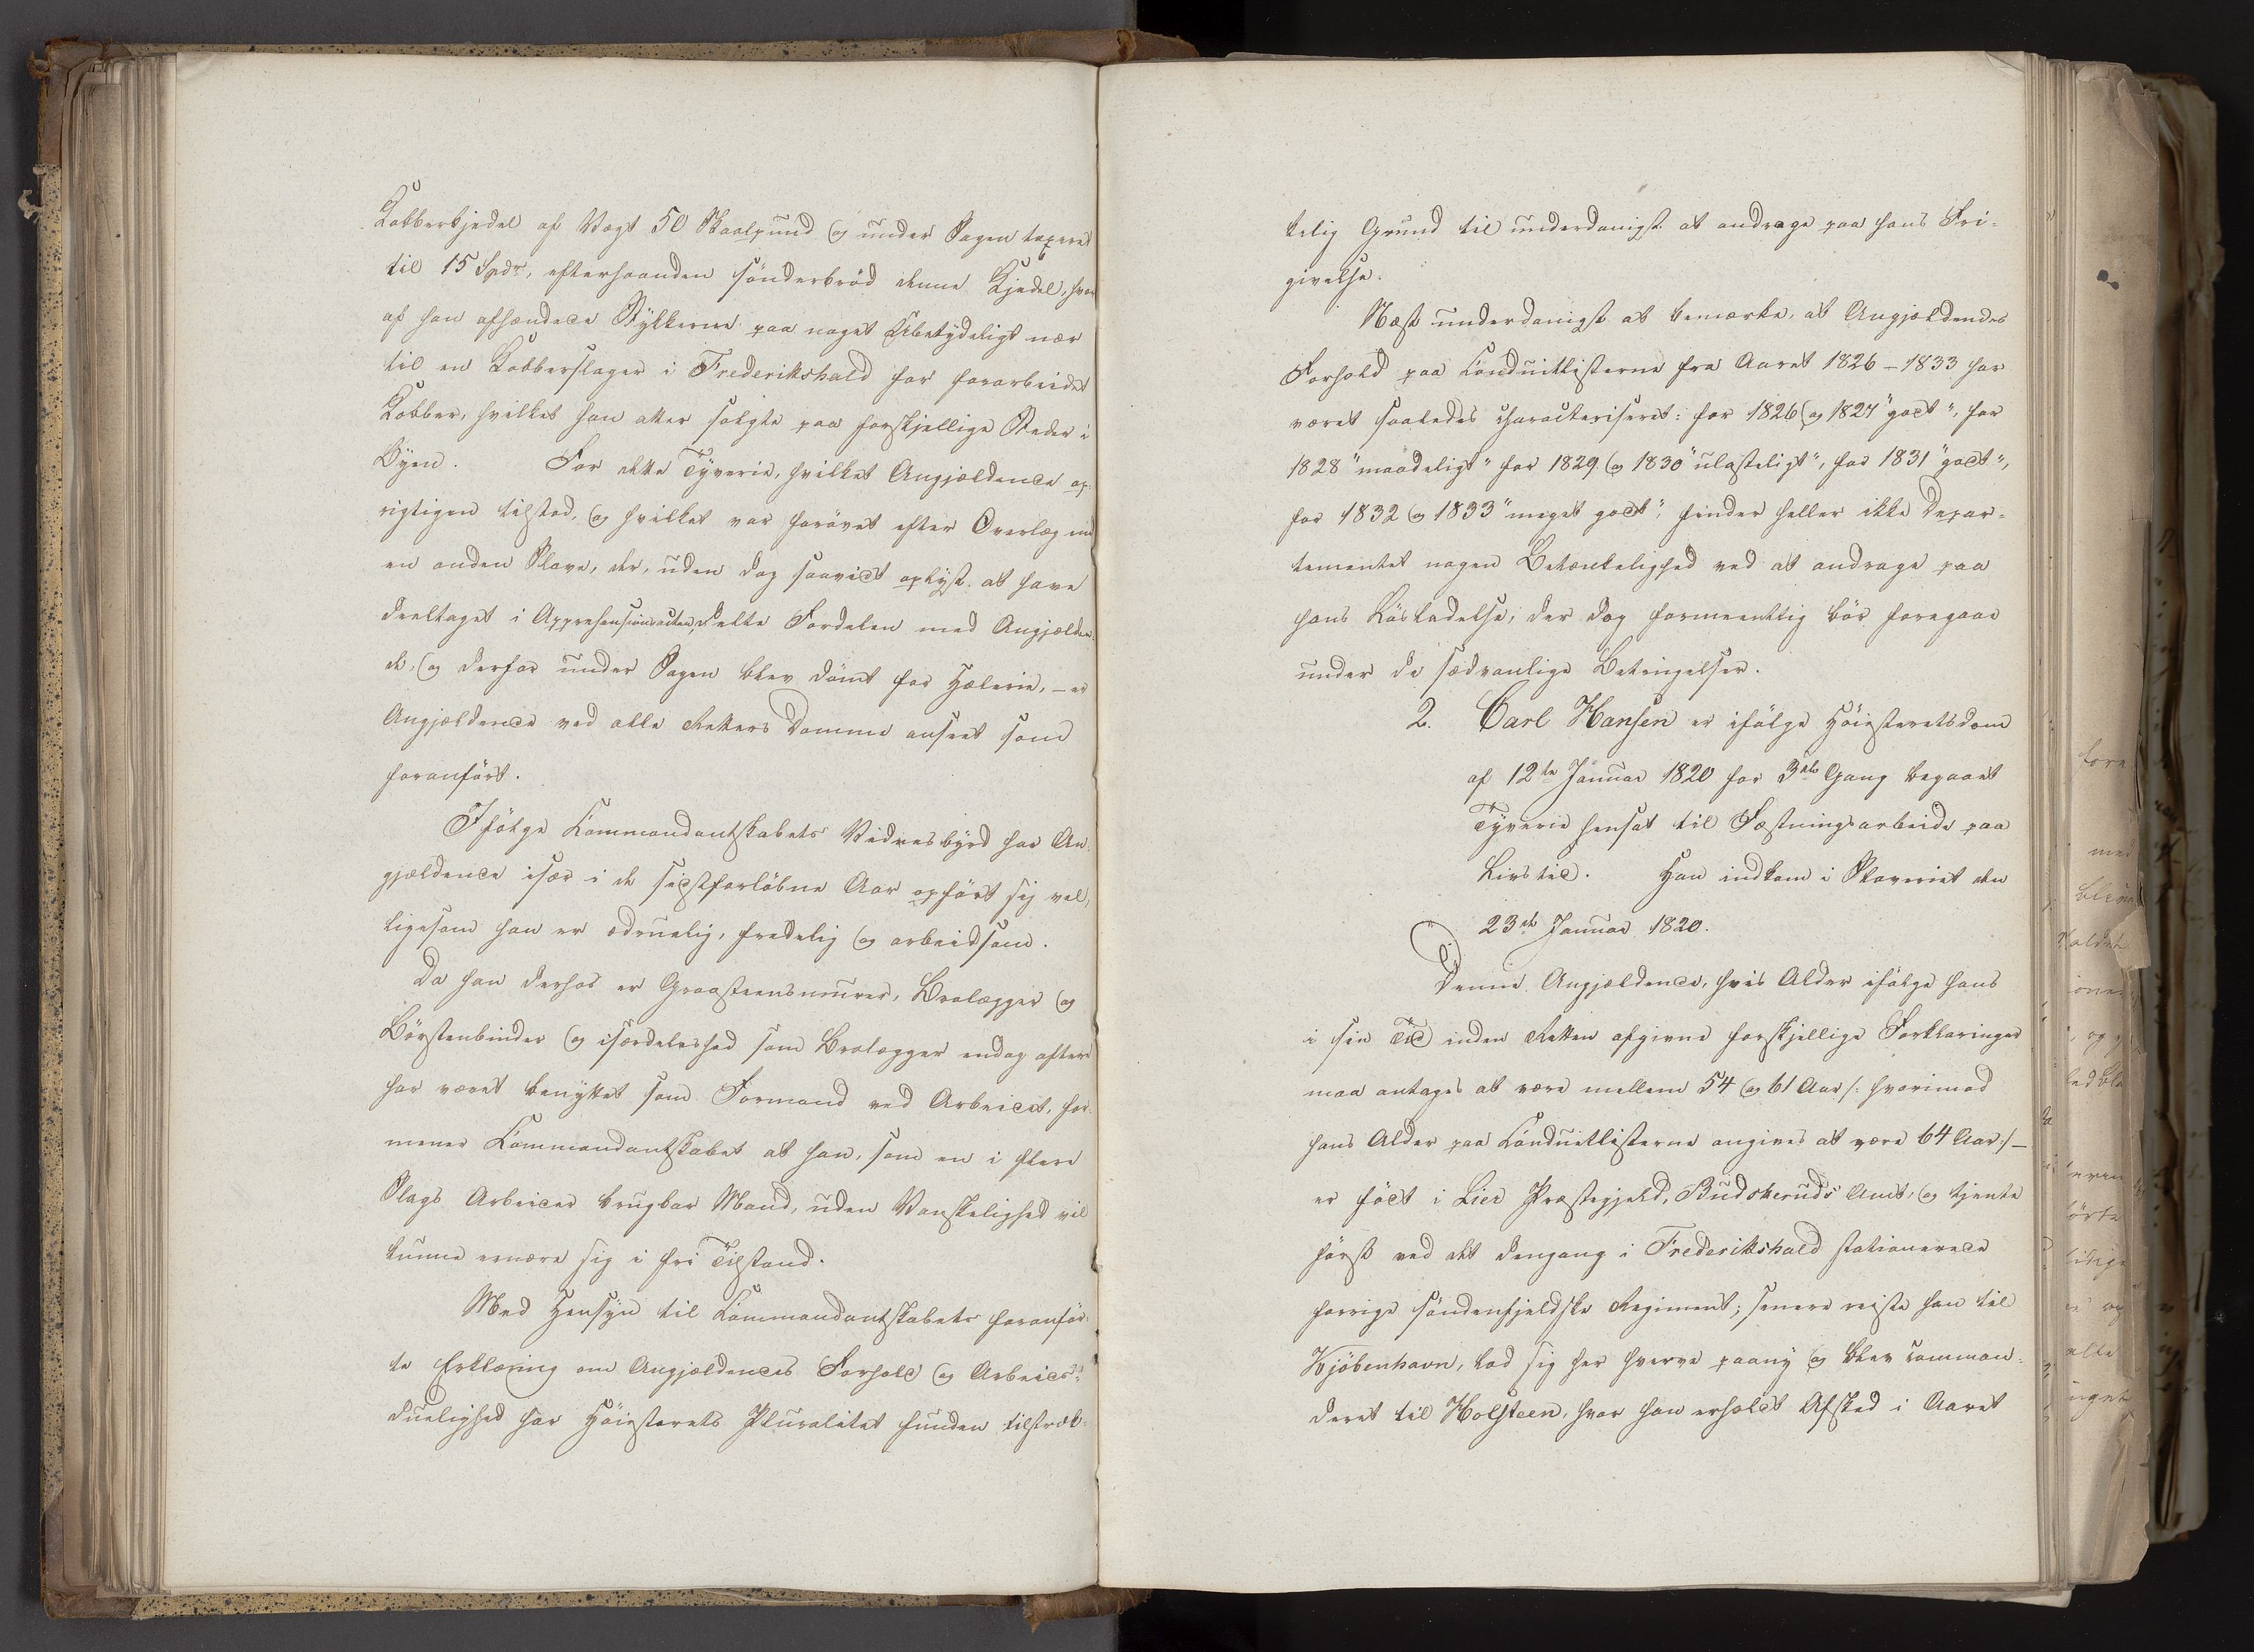 Kobberkjedel af Vægt 50 Skaalpund og under Sagen taxeret
til 15 Spdr, efterhaanden sönderbröd denne Kjedel, hvor
af han afhændede Stykkerne paa noget Ubetydeligt nær
til en Kobberslager i Frederikshald for forarbeidet
Kobber, hvilket han atter solgte paa forskjellige Steder i
Byen. For dette Tyverie, hvilket Angjældende op-
rigtigen tilstod, og hvilket var forövet efter Overlæg med
en anden Slave, der, uden dog saavidt oplyst at have
deeltaget i Apprehensionsacten, deelte Fordelen med Angjælden-
de, og derfor under Sagen blev dömt for Hæleri, – er
Angjældende ved alle Retters Domme anseet som
foranfört.
Ifölge Commandantskabets Vidnesbyrd har An-
gjældende især i de sidstforlöbne Aar opfört sig vel,
ligesom han er ædruelig, fredelig og arbeidsom.
Da han derhos er Graasteensmurer, Brolægger og
Börstenbinder og isærdeleshed som Brolægger endog oftere
har været benyttet som Formand ved Arbeidet, for-
mener Commandantskabet at han, som en i flere
Slags Arbeider brugbar Mand, uden Vanskelighed vil
kunne ernære sig i fri Tilstand.
Med Hensyn til Commandantskabets foranför-
te Erklæring om Angjældendes Forhold og Arbeids-
duelighed har Höiesterets Pluralitet funden tilstræk-
kelig Grund til underdanigst at andrage paa hans Fri-
givelse.
Næst underdanigst at bemærke, at Angjældendes
Forhold paa Conduitlisterne fra Aaret 1826 – 1833 har
været saaledes characteriseret: for 1826 og 1827 "godt", for
1828 "maadeligt" for 1829 og 1830 "ulasteligt", for 1831 "godt",
for 1832 og 1833 "meget godt", finder heller ikke Depar-
tementet nogen Betænkelighed ved at andrage paa
hans Lösladelse, der dog formeentlig bör foregaae
under de sædvanlige Betingelser.
2. Carl Hansen er ifölge Höiesteretsdom
af 12te Januar 1820 for 3die Gang begaaet
Tyverie hensat til Fæstningsarbeide paa
Livstid. Han indkom i Slaveriet den
23de Januar 1820.
Denne Angjældende, hvis Alder ifölge hans
i sin Tid inden Retten afgivne forskjellige Forklaringer
maa antages at være mellem 54 og 61 Aar /: hvorimod
hans Alder paa Conduitlisterne angives at være 64 Aar :/ –
er födt i Lier Præstegjeld, Budskeruds Amt, og tjente
först ved det dengang i Frederikshald stationerede
forrige söndenfjeldske Regiment; senere reiste han til
Kjöbenhavn, lod sig her hverve paany og blev comman-
deret til Holsteen, hvor han erholdt Afsked i Aaret